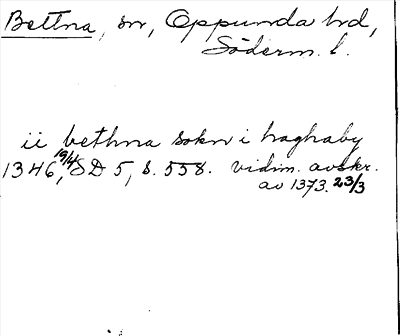 Bettna, sn, Oppunda hrd,
Söderm. l.
ii bethna sokn i haghaby
1346, 19/4 SD 5, s. 558. vidim. avskr.
av 1373. 23/3